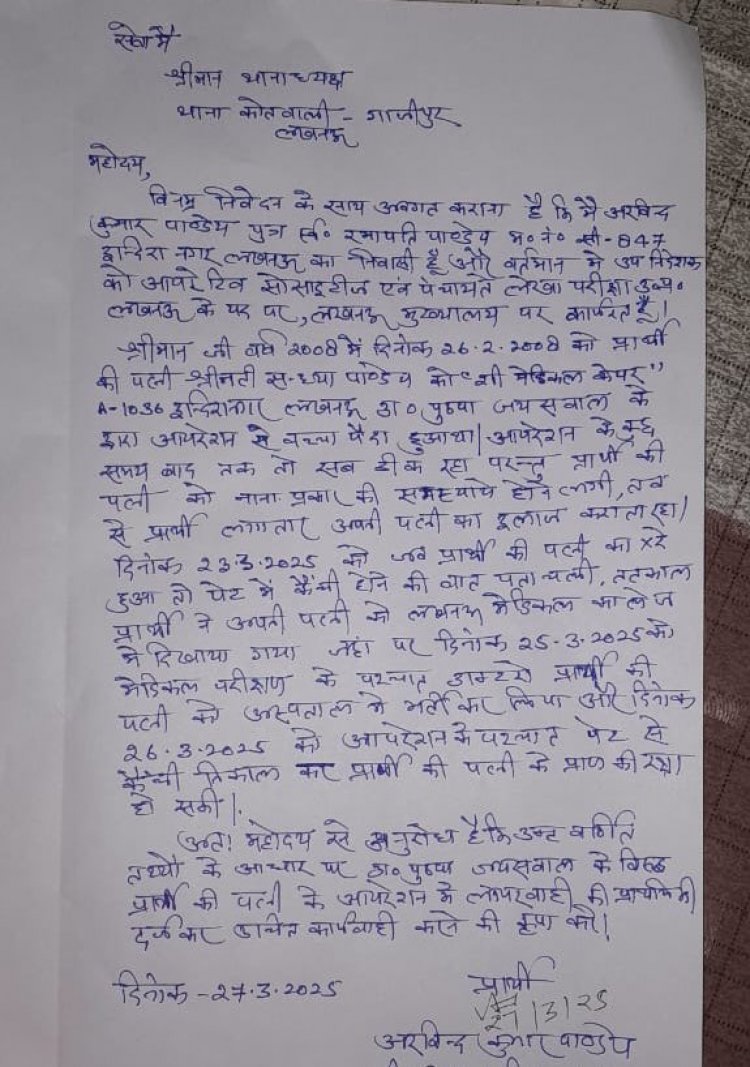 सेवा मै
श्रीमान थानाध्यक्ष
थाना कोतवाली - गाजीपुर
लखनऊ
महोदय,
विनम्र निवेदन के साथ अवगत कराना है कि मै अरविन्द
कुमार पाण्डेय पुत्र स्व० रमापति पाण्डेय म० नं० सी-847
इन्दिरा नगर लखनऊ का निवासी हूँ और वर्तमान मे उप निदेशक
को आपरेटिव सोसाइटीज एवं पंचायतें लेखा परीक्षा उ०प्र०
लखनऊ के पद पर, लखनऊ मुख्यालय पर कार्यरत हूँ।
श्रीमान जी वर्ष 2008 में दिनांक 26.2.2008 को प्रार्थी
की पत्नी श्रीमती सन्ध्या पाण्डेय को "शी मेडिकल केयर"
A-1036 इन्दिरानगर लखनऊ डा० पुष्पा जयसवाल के
द्वारा आपरेशन से बच्चा पैदा हुआ था। आपरेशन के कुछ
समय बाद तक तो सब ठीक रहा परन्तु प्रार्थी की
पत्नी को नाना प्रकार की समस्याये होने लगी, तब
से प्रार्थी लगातार अपनी पत्नी का इलाज कराता रहा।
दिनांक 23.3.2025 को जब प्रार्थी की पत्नी का X रे
हुआ तो पेट में कैंची होने की बात पता चली, तत्काल
प्रार्थी ने अपनी पत्नी को लखनऊ मेडिकल कालेज
मे दिखाया गया जहां पर दिनांक 25-3-2025 को
मेडिकल परीक्षण के पश्चात डाक्टरो प्रार्थी की
पत्नी को अस्पताल मे भर्ती कर लिया और दिनांक
26.3.2025 को आपरेशन के पश्चात पेट से
कैंची निकाल कर प्रार्थी की पत्नी के प्राण की रक्षा
हो सकी।
अतः महोदय से अनुरोध है कि उक्त वर्णित
तथ्यों के आधार पर डा० पुष्पा जयसवाल के विरुद्ध
प्रार्थी की पत्नी के आपरेशन मे लापरवाही की प्राथमिकी
दर्ज कर उचित कार्यवाही करने की कृपा करें।
दिनांक - 27.3.2025
प्रार्थी
27/3/25
अरविन्द कुमार पाण्डेय